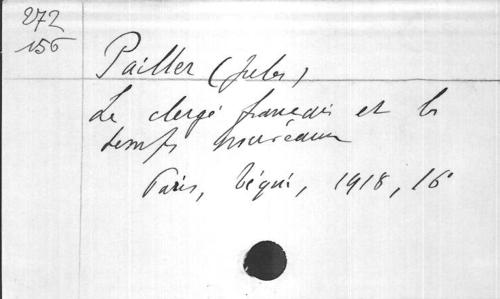 272
156
Pailler (Jules)
Le clergé français et les
temps nouveaux
Paris, Téqui, 1918, 16°